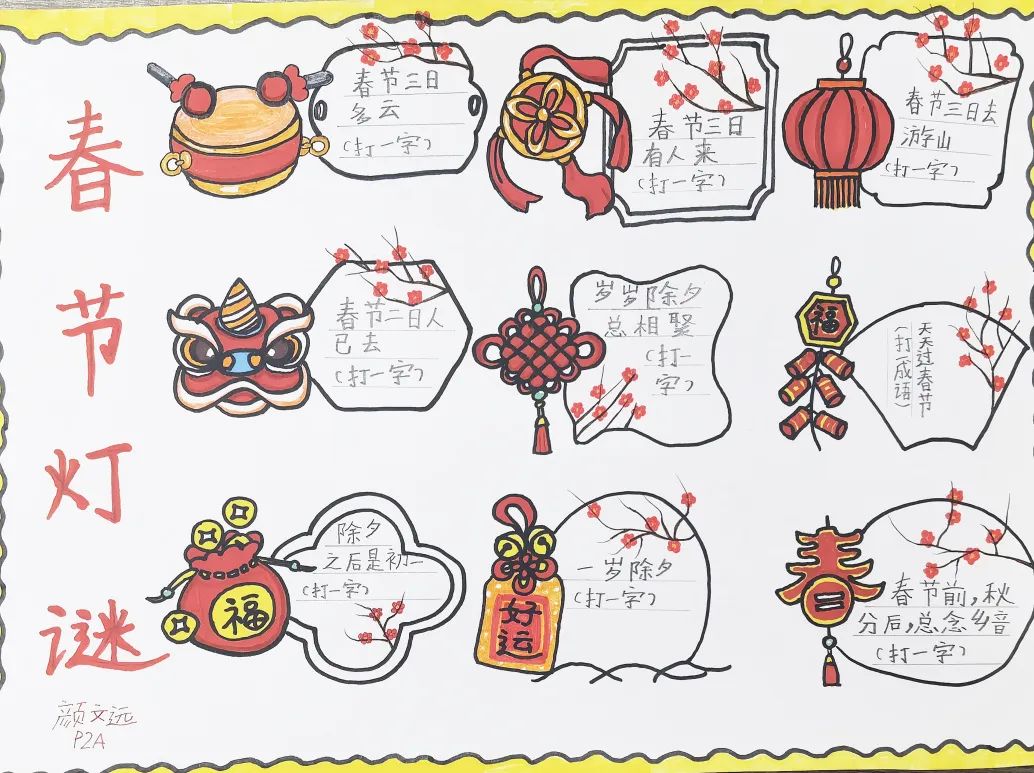 春
节
灯
谜
颜文远
P2A
春节三日
多云
(打一字)
春节三日
有人来
(打一字)
春节三日去
游山
(打一字)
春节二日人
已去
(打一字)
岁岁除夕
总相聚
(打一
字)
福
天天过春节
(打一成语)
福
除夕
之后是初一
(打一字)
好
运
一岁除夕
(打一字)
春
春节前,秋
分后,总念乡音
(打一字)